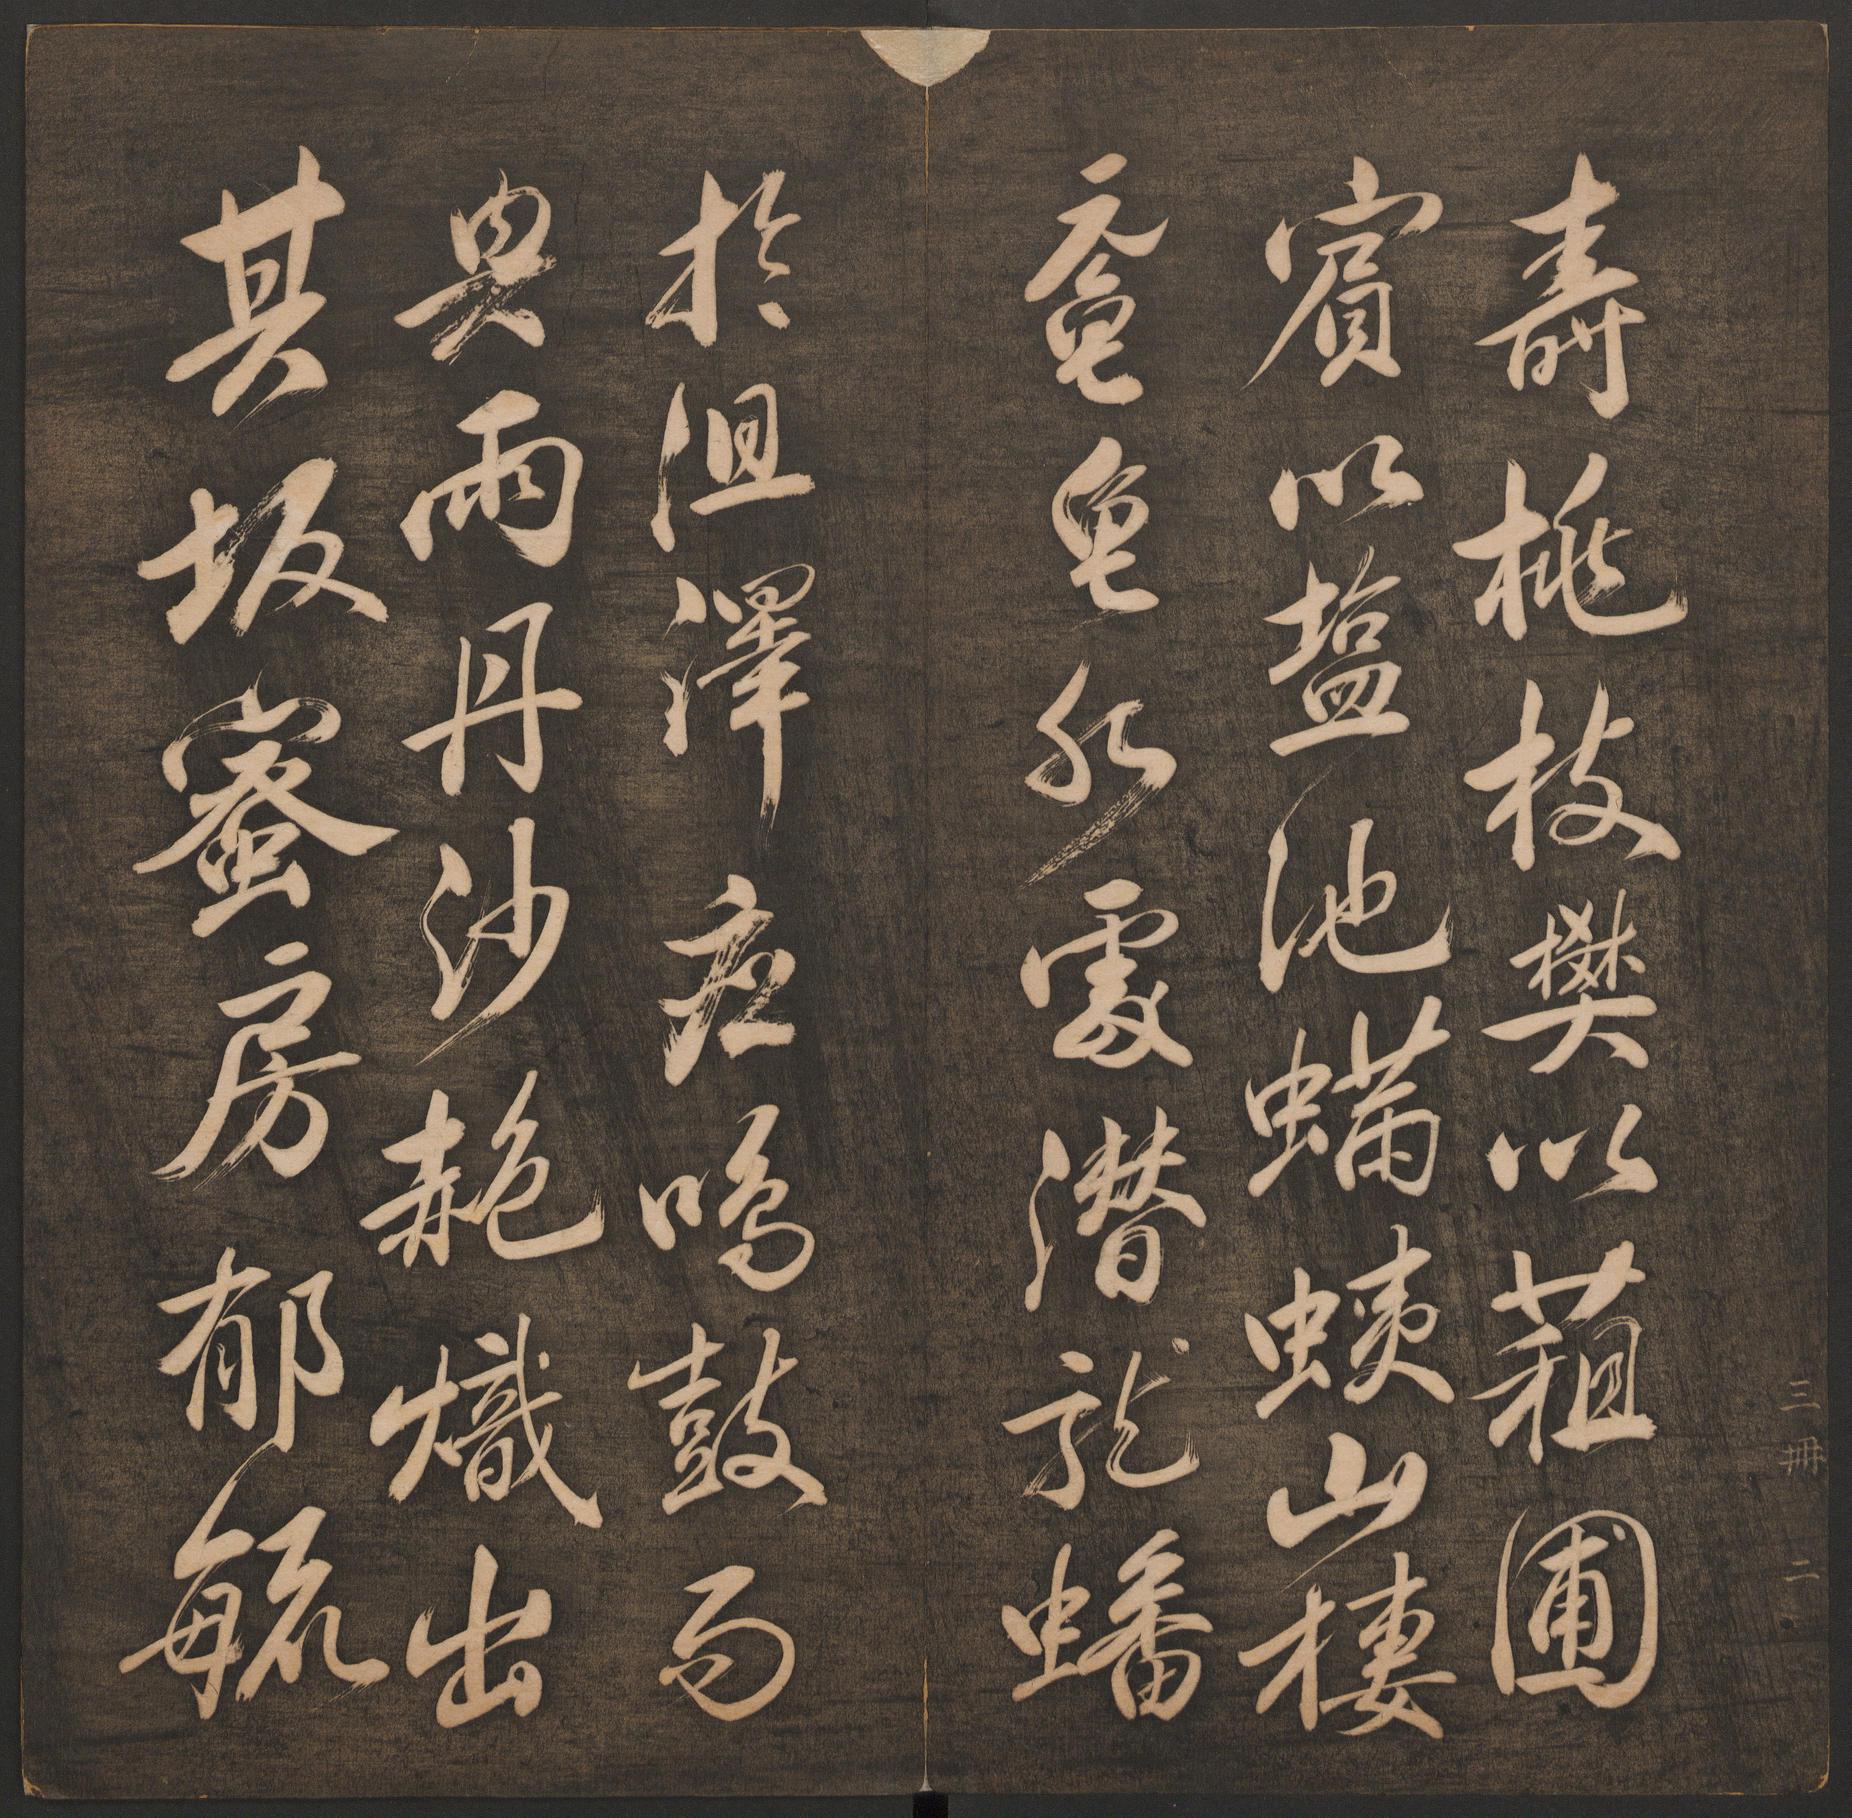 壽桃枝樊以蒩圃
賓以塩池螨蛦山棲
黿龜水處潛龍蟠
於沮澤應鳴鼓而
興雨丹沙赩熾出
其坂蜜房郁毓
三冊 二